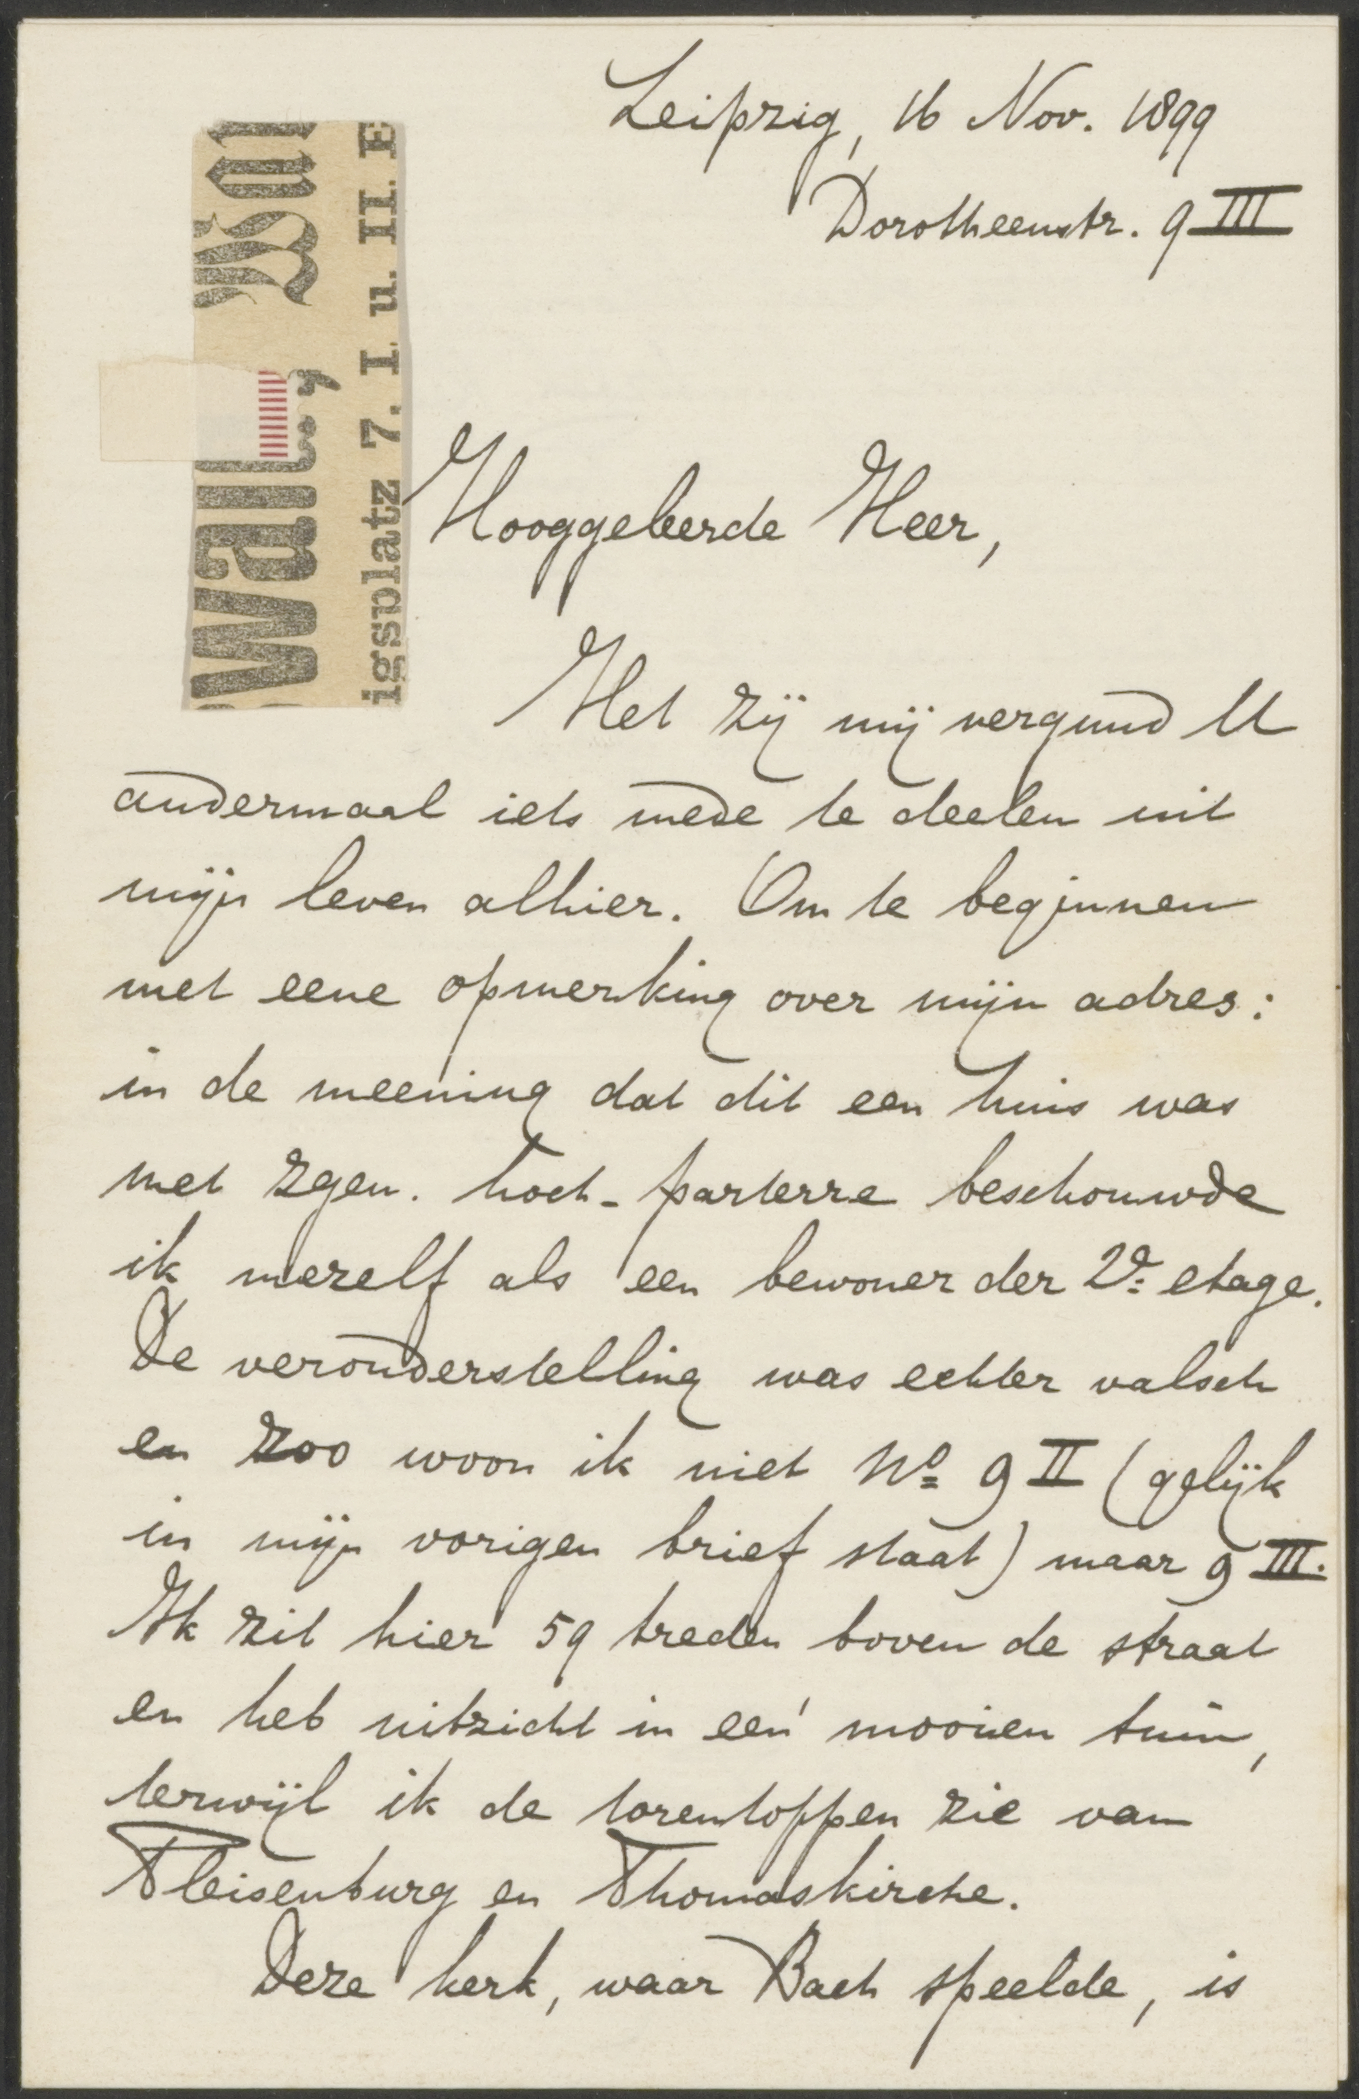 Leipzig, 16 Nov. 1899
Dorotheenstr. 9 III
wall,
igsplatz 7. I u. II. E
Hooggeleerde Heer,
Het zij mij vergund U
andermaal iets mede te deelen uit
mijn leven alhier. Om te beginnen
met eene opmerking over mijn adres:
in de meening dat dit een huis was
met zgen. hoch-parterre beschouwde
ik mezelf als een bewoner der 2e etage.
De veronderstelling was echter valsch
en zoo woon ik niet No 9 II (gelijk
in mijn vorigen brief staat) maar 9 III.
Ik zit hier 59 treden boven de straat
en heb uitzicht in een mooien tuin,
terwijl ik de torentoppen zie van
Pleisenburg en Thomaskirche.
Deze kerk, waar Bach speelde, is